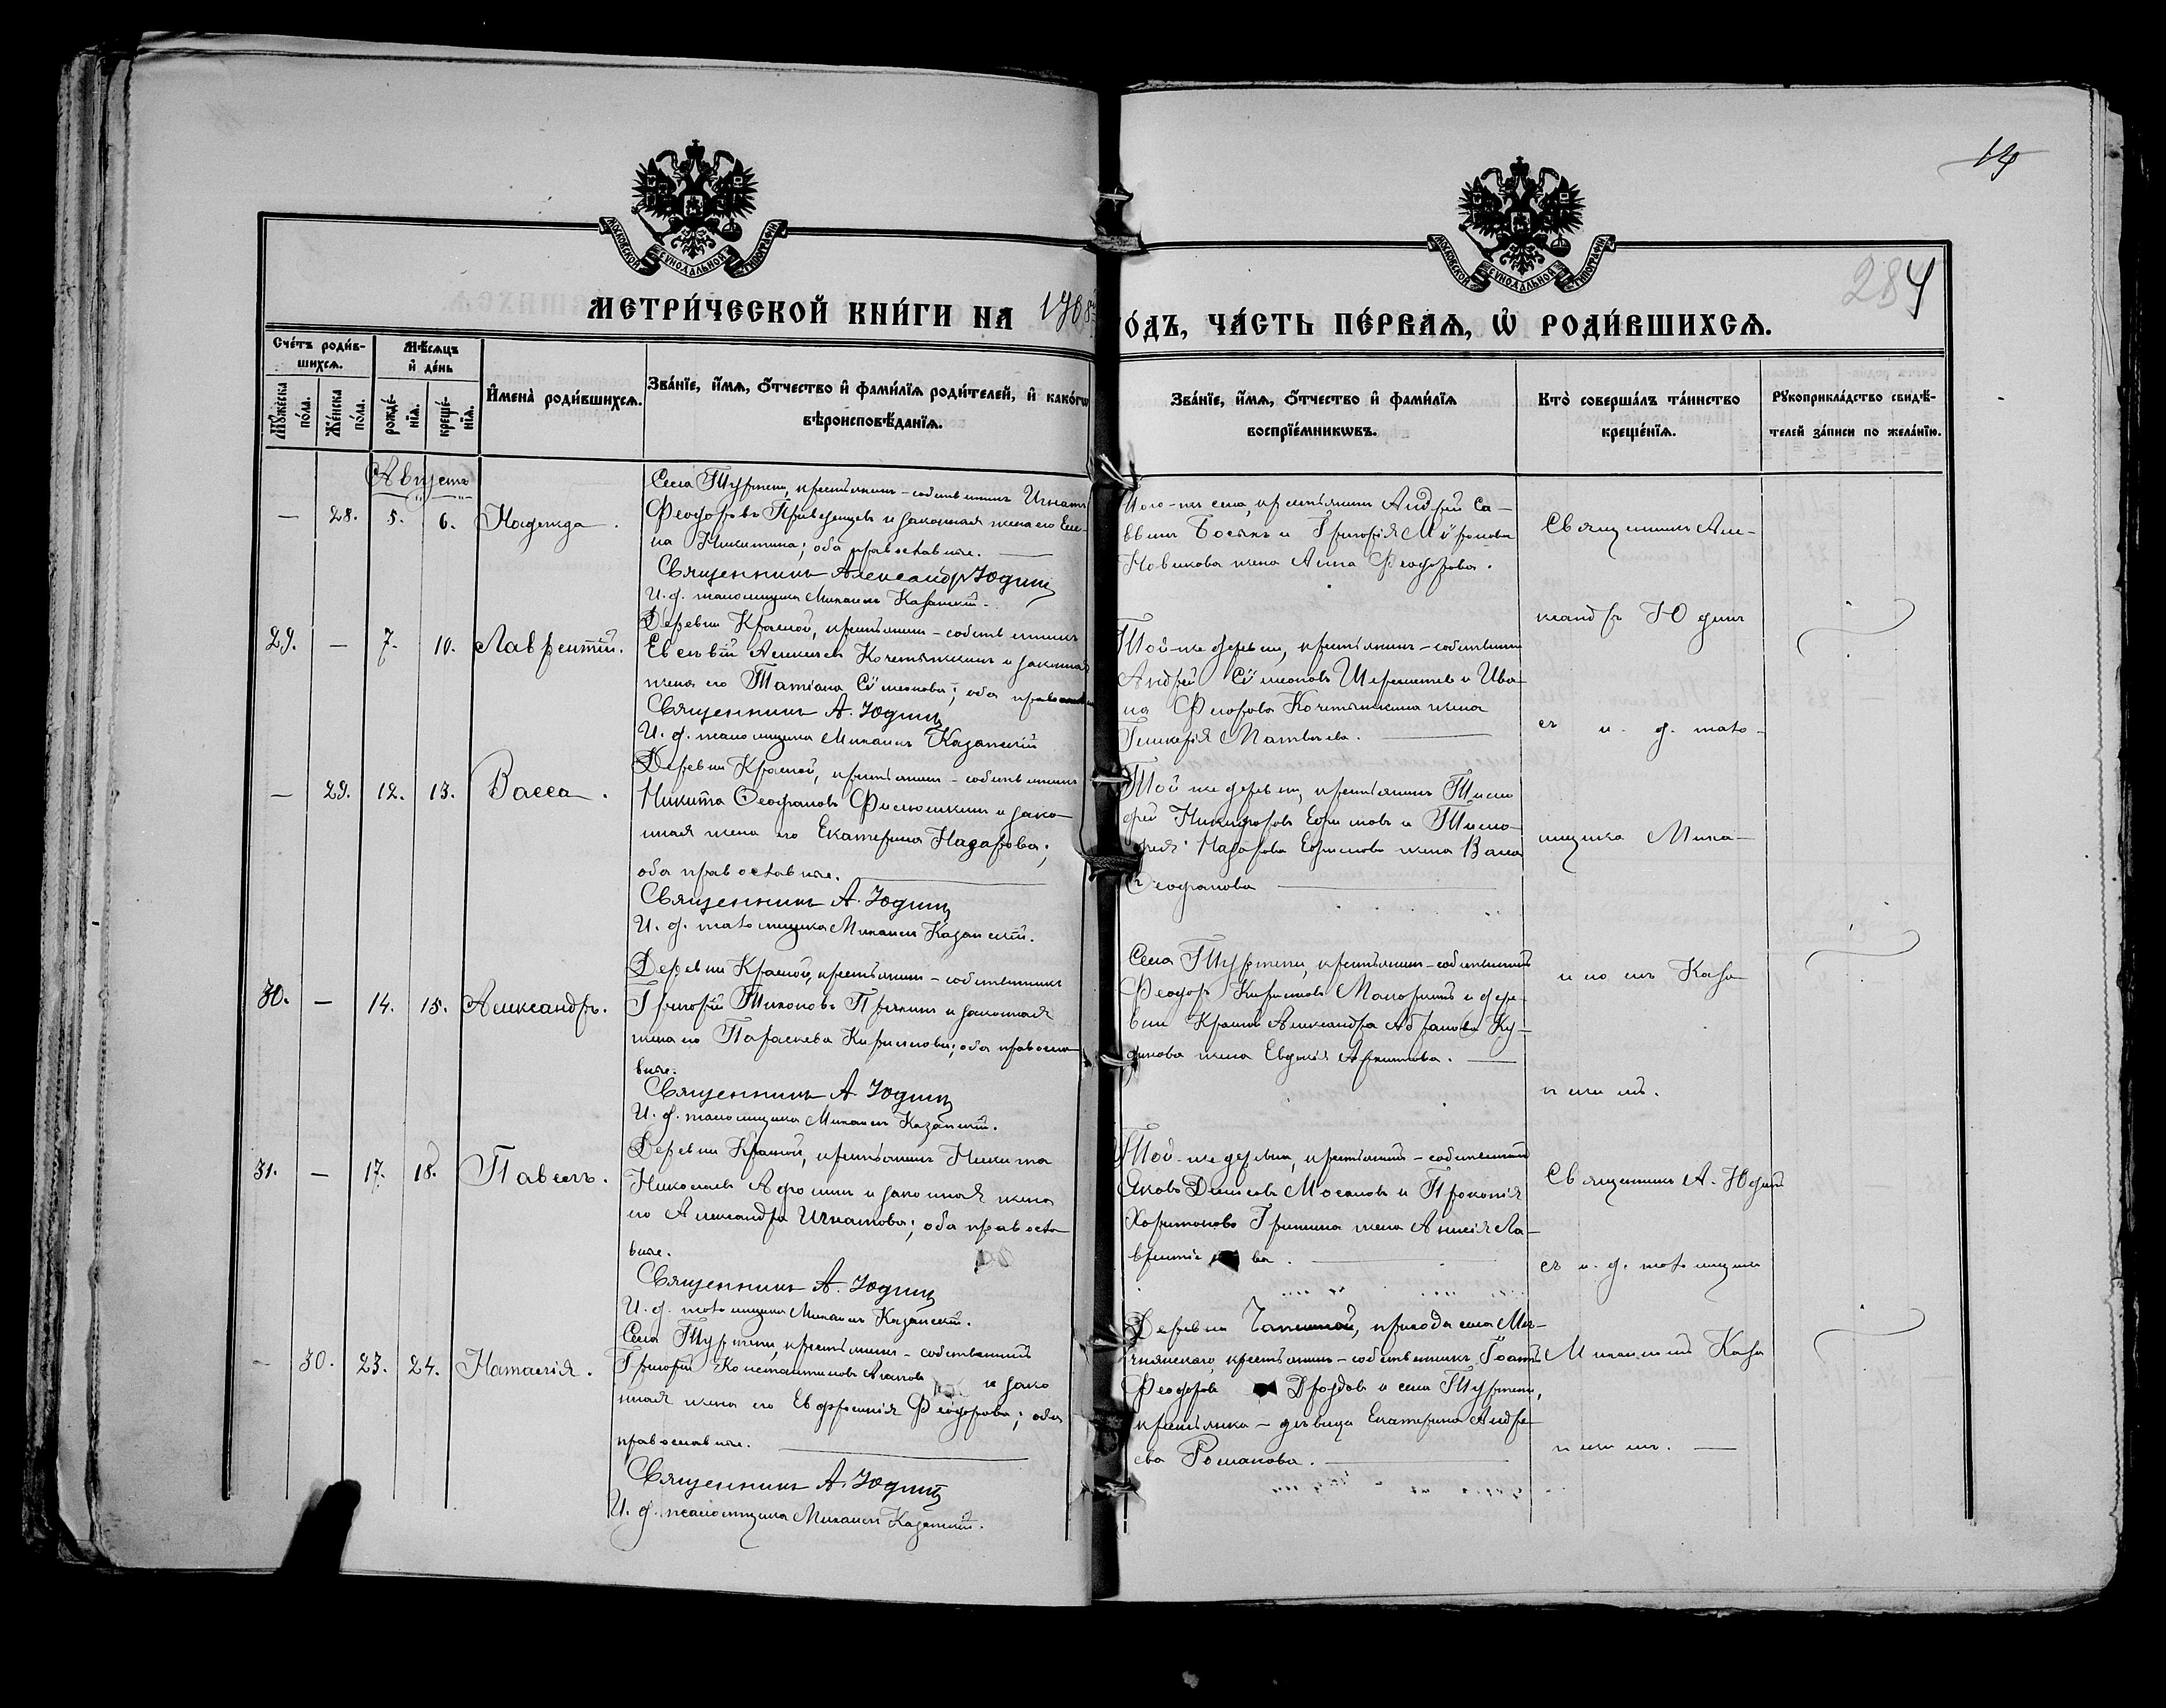 14
284
МОСКОВСКОЙ СѴНОДАЛЬНОЙ ТИПОГРАФІИ
МОСКОВСКОЙ СѴНОДАЛЬНОЙ ТИПОГРАФІИ
МЕТРИ́ЧЕСКОЙ КНИ́ГИ НА 1908
О́ДЪ, ЧА́СТЬ ПЕ́РВАѦ, Ѽ РОДИ́ВШИХСѦ.
Сче́тъ роди́в-
шихсѧ.
Мѣ́сѧцъ
и҆ де́нь
Мꙋ́жеска
по́ла.
Же́нска
по́ла.
рожде́-
нїѧ.
креще́-
нїѧ.
И҆мена̀ роди́вшихсѧ.
Зва́нїе, и҆́мѧ, ѻ҆́тчество и҆ фами́лїѧ роди́телей, и҆ како́гѡ
вѣроисповѣ́данїѧ.
Зва́нїе, и҆́мѧ, ѻ҆́тчество и҆ фами́лїѧ
воспрїе́мникѡвъ.
Кто̀ соверша́лъ та́инство
креще́нїѧ.
Рꙋкоприкла́дство свидѣ́-
телей за́писи по жела́нїю.
Августъ
— 28. 5. 6. Надежда.
Села Турмени, крестьянинъ-собственникъ Игнатъ
Феодоровъ и законная жена его Еле-
на Никитина; оба православные.
Священникъ Александръ Юдинъ
И. д. псаломщика Михаилъ Казанскій.
Того-же села, крестьянинъ Андрей Са-
ввинъ Босякъ и Григорія Мѵронова
Новикова жена Анна Феодорова.
Священникъ Але-
ксандръ Юдинъ
29. — 7. 10. Лаврентій.
Деревни Красной, крестьянинъ-собственникъ
Евсевій Алексѣевъ и законная
жена его Татіана Сѵмеонова; оба православные
Священникъ А. Юдинъ
И. д. псаломщика Михаилъ Казанскій
Той-же деревни, крестьянинъ-собственникъ
Андрей Сѵмеоновъ Шереметевъ и Ива-
на Феодорова жена
Гликерія Матвѣева.
съ и. д. псало-
— 29. 12. 13. Васса.
Деревни Красной, крестьянинъ-собственникъ
Никита Феофановъ и зако-
нная жена его Екатерина Назарова;
оба православные.
Священникъ А. Юдинъ
И. д. псаломщика Михаилъ Казанскій.
Той же деревни, крестьянинъ Тимо
фей Никифоровъ и Тимо-
фея Назарова жена Васса
Феофанова
мщика Миха-
30. — 14. 15. Александръ.
Деревни Красной, крестьянинъ-собственникъ
Григорій Тихоновъ и законная
жена его Параскева Кириллова; оба правосла-
вные.
Священникъ А. Юдинъ
И. д. псаломщика Михаилъ Казанскій.
Села Турмени, крестьянинъ-собственникъ
Феодоръ Кирилловъ и дере-
вни Красной Александра Абрамова Ку-
динова жена Евдокія
иломъ Каза
нскимъ.
31. — 17. 18. Павелъ.
Деревни Красной, крестьянинъ Никита
Николаевъ Афонинъ и законная жена
его Александра Игнатова; оба правосла-
вные.
Священникъ А. Юдинъ
И. д. псаломщика Михаилъ Казанскій.
Той-же деревни, крестьянинъ-собственникъ
Яковъ Денисовъ и Прокопія
Харитонова Гришина жена Анисія Ла-
врентіева.
Священникъ А. Юдинъ
съ и. д. псаломщика
— 30. 23. 24. Наталія.
Села Турмени, крестьянинъ-собственникъ
Григорій Константиновъ и зако
нная жена его Евфросинія Феодорова; оба
православные.
Священникъ А. Юдинъ
И. д. псаломщика Михаилъ Казанскій.
Деревни прихода села
крестьянинъ-собственникъ Іоаннъ
Феодоровъ Дроздовъ и села Турмени,
крестьянка-дѣвица Екатерина Андре-
ева Романова.
Михаиломъ Каза
нскимъ.